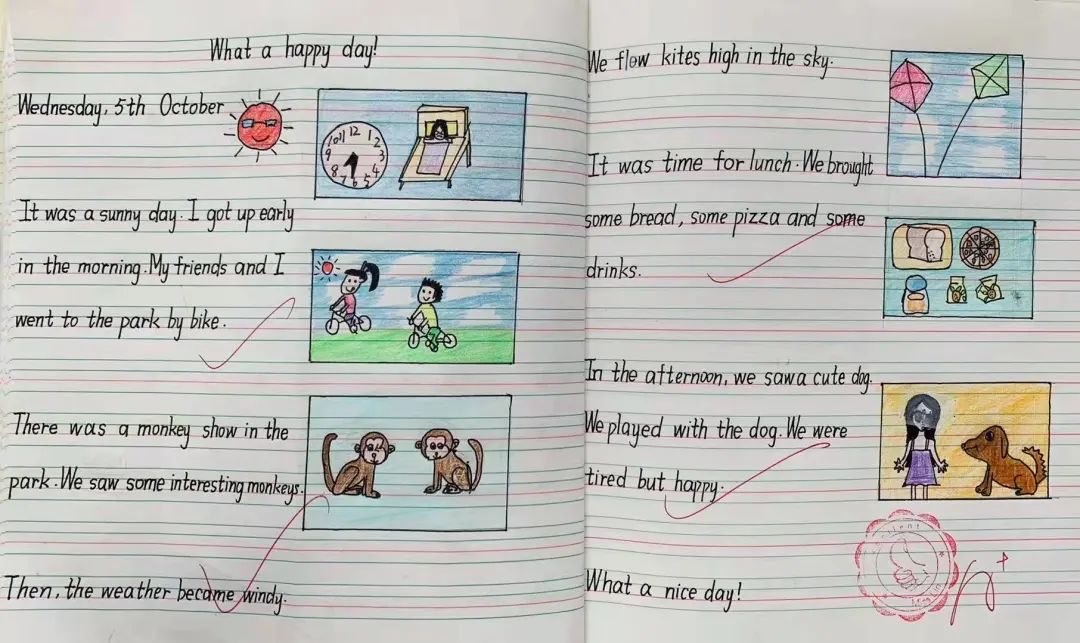 What a happy day!
Wednesday, 5th October
It was a sunny day. I got up early
in the morning. My friends and I
went to the park by bike.
There was a monkey show in the
park. We saw some interesting monkeys.
Then, the weather became windy.
We flew kites high in the sky.
It was time for lunch. We brought
some bread, some pizza and some
drinks.
In the afternoon, we saw a cute dog.
We played with the dog. We were
tired but happy.
What a nice day!
12
11
1
10
2
9
3
8
4
7
6
5